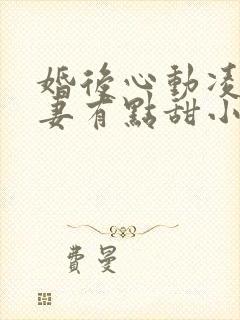 婚後心動凌
妻有點甜小
費曼